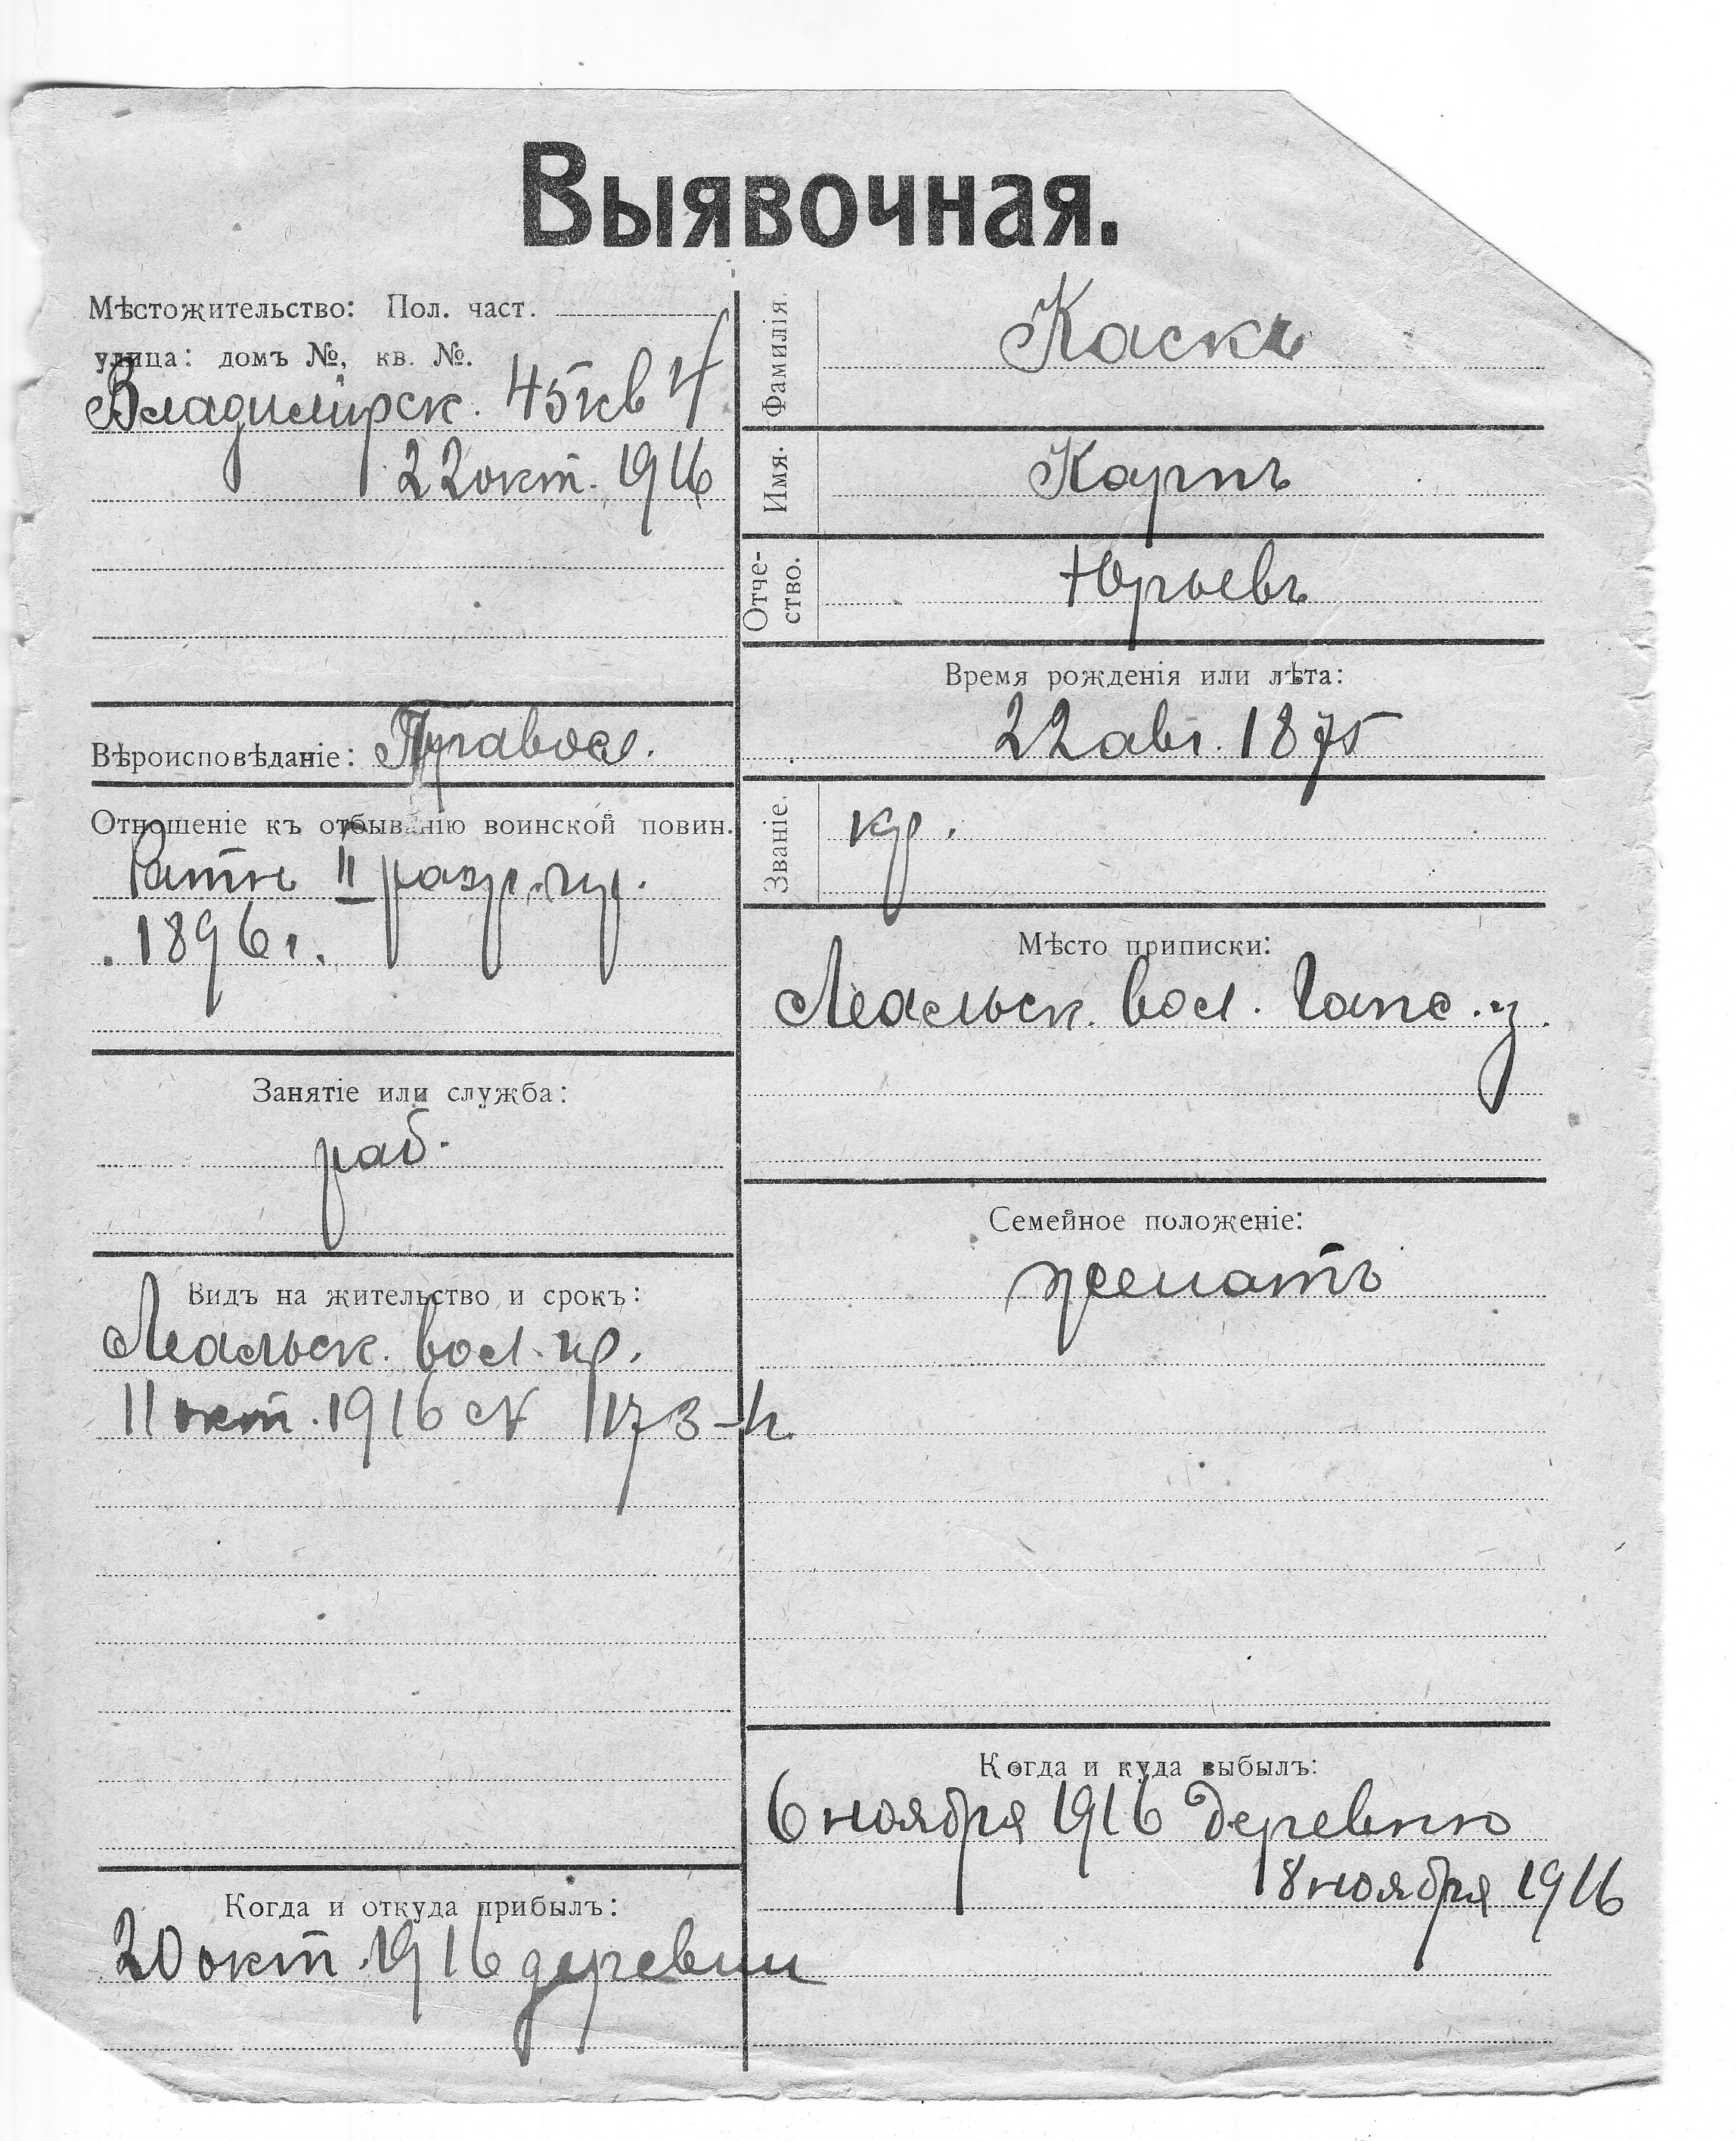 Выявочная.
Мѣстожительство: Пол. част.
улица: домъ №, кв. №.
Владимірск. 45 кв 4
22 окт. 1916
Вѣроисповѣданіе: Правосл.
Отношеніе къ отбыванію воинской повин.
Ратн II разр. пр.
1896 г.
Занятіе или служба:
раб.
Видъ на жительство и срокъ:
Леальск. вол. пр.
11 окт. 1916 №
Когда и откуда прибылъ:
20 окт. 1916 деревни
Фамилія.
Каскъ
Имя.
Карпъ
Отче-
ство.
Юрьевъ
Время рожденія или лѣта:
22 авг. 1875
Званіе.
кр.
Мѣсто приписки:
Леальск. вол. Гапс. у.
Семейное положеніе:
женатъ
Когда и куда выбылъ:
6 ноября 1916 деревню
8 ноября 1916